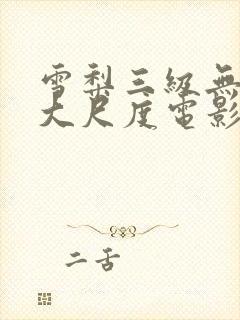 雪梨三級無
大尺度電影
二舌